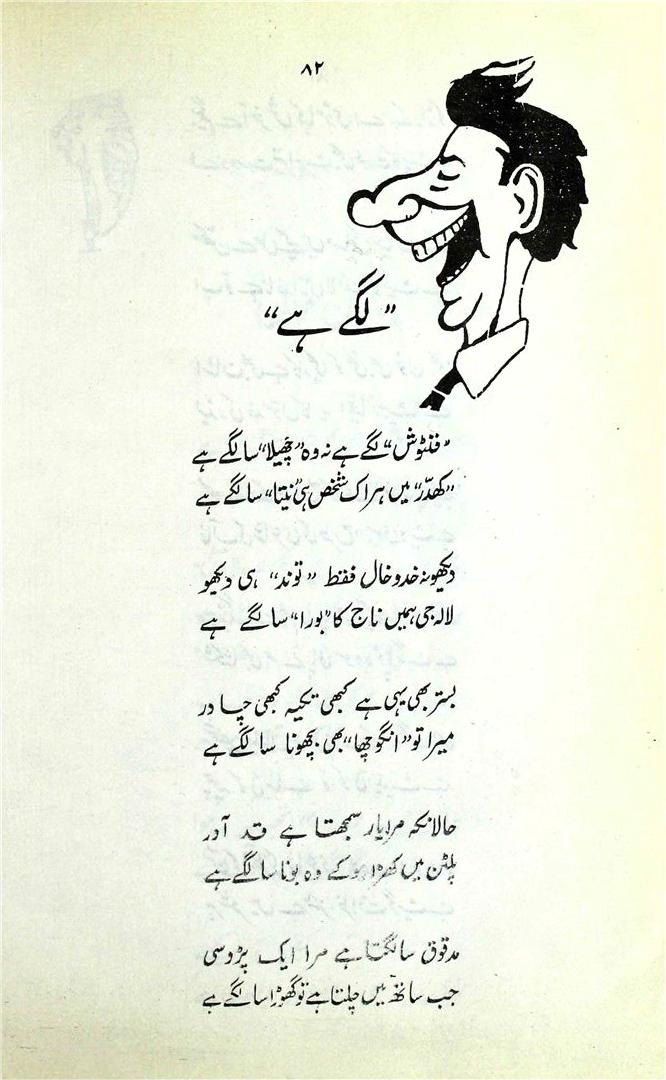 ۸۲
"لگے ہے"
"فنٹوش" لگے ہے نہ وہ "چھیلا" سا لگے ہے
"کھدّر" میں ہر اک شخص ہی "نیتا" سا لگے ہے
دیکھو نہ خدوخال فقط "توند" ہی دیکھو
لالہ جی ہمیں ناج کا "بورا" سا لگے ہے
بستر بھی یہی ہے کبھی تکیہ کبھی چادر
میرا تو "انگوچھا" بھی بچھونا سا لگے ہے
حالانکہ مرا یار سمجھتا ہے قد آدر
پلٹن میں کھڑا ہوکے وہ بونا سا لگے ہے
مدقوق سا لگتا ہے مرا ایک پڑوسی
جب سانٹھ میں چلتا ہے تو گھوڑا سا لگے ہے